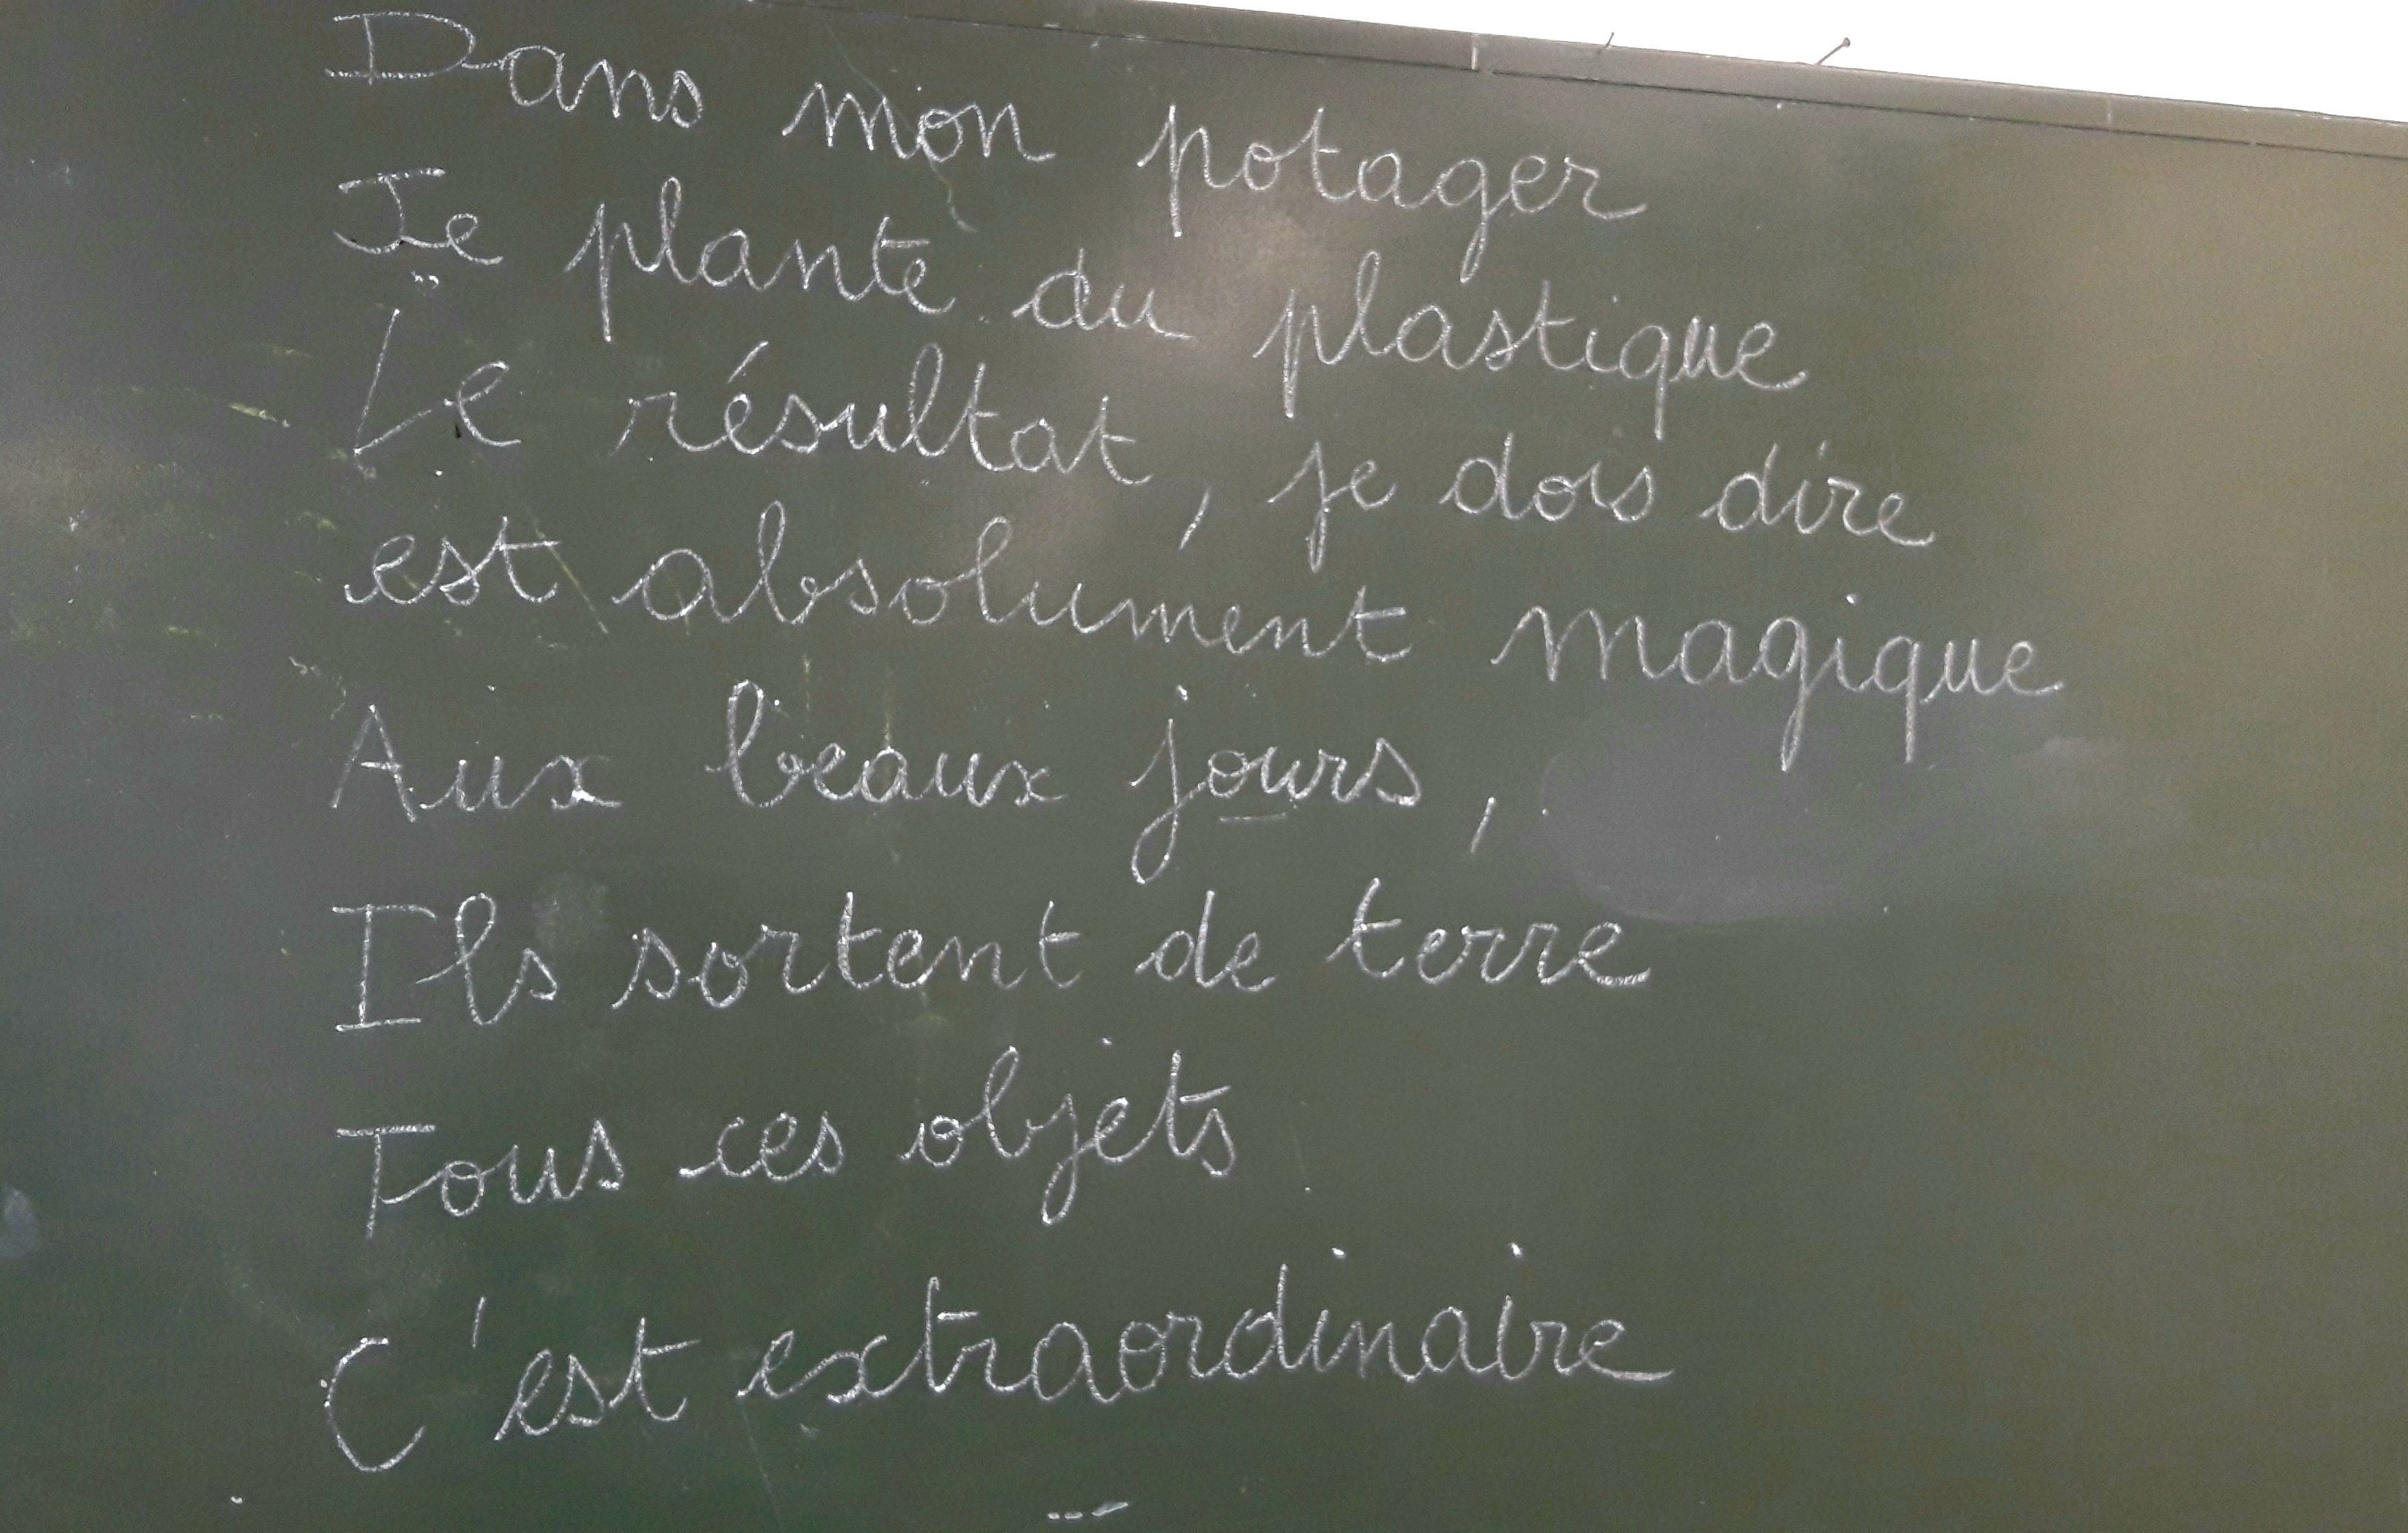 Dans mon potager
Je plante du plastique
Le résultat, je dois dire
est absolument magique
Aux beaux jours,
Ils sortent de terre
Tous ces objets
C'est extraordinaire